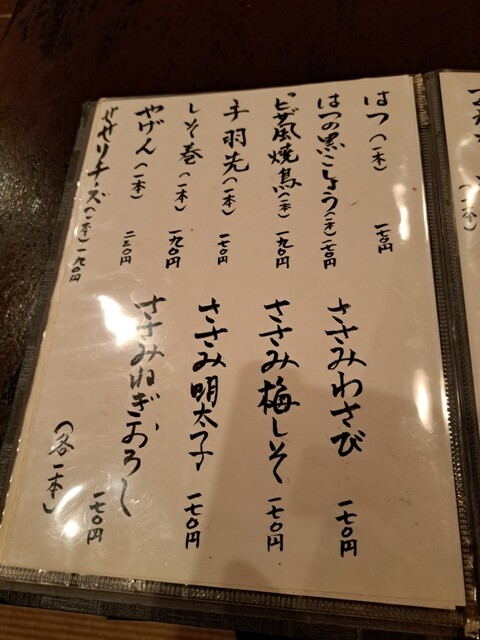 はつ(一本) 一七〇円
はつの黒こしょう(一本) 一七〇円
ピザ風焼鳥(一本) 一九〇円
手羽先(一本) 一七〇円
しそ巻(一本) 一九〇円
やげん(一本) 二三〇円
せせりチーズ(一本) 一九〇円
ささみわさび 一七〇円
ささみ梅しそ 一七〇円
ささみ明太子 一七〇円
ささみねぎおろし 一七〇円
(各一本)